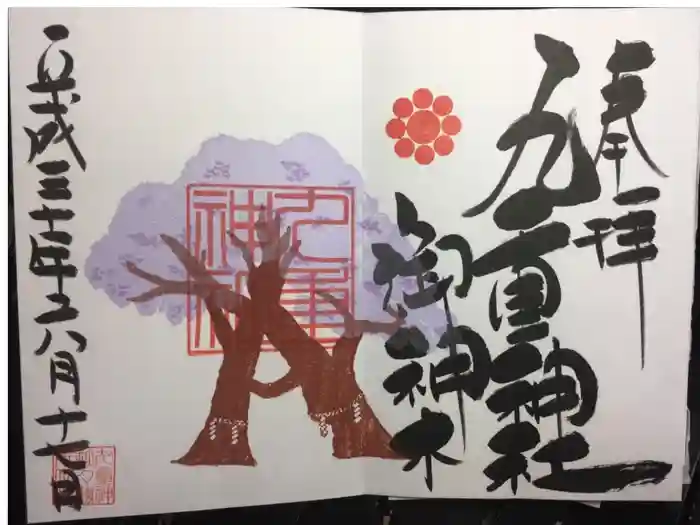 奉拝
九重神社
御神木
九重神社
平成三十年六八月十七日